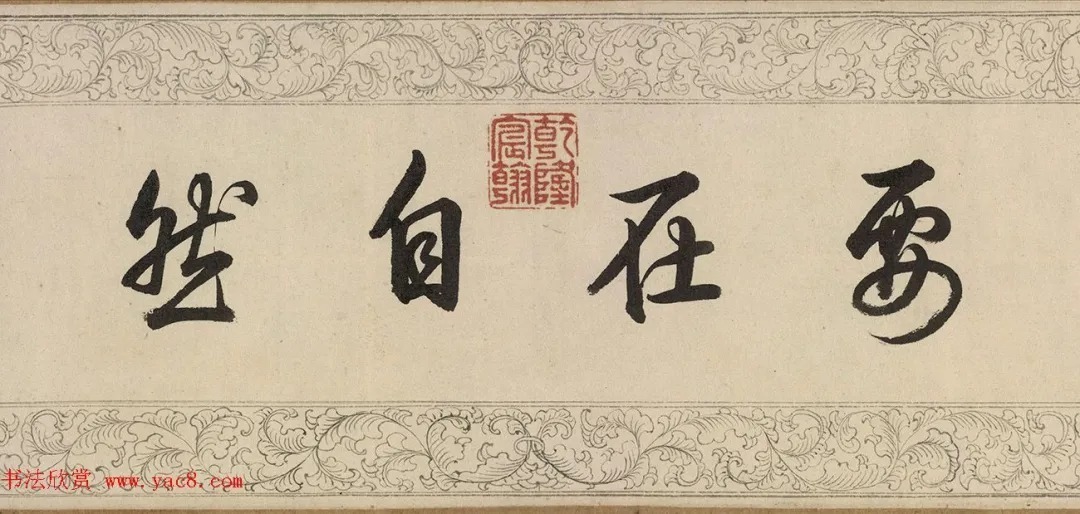 要在自然
乾隆宸翰
书法欣赏 www.yac8.com